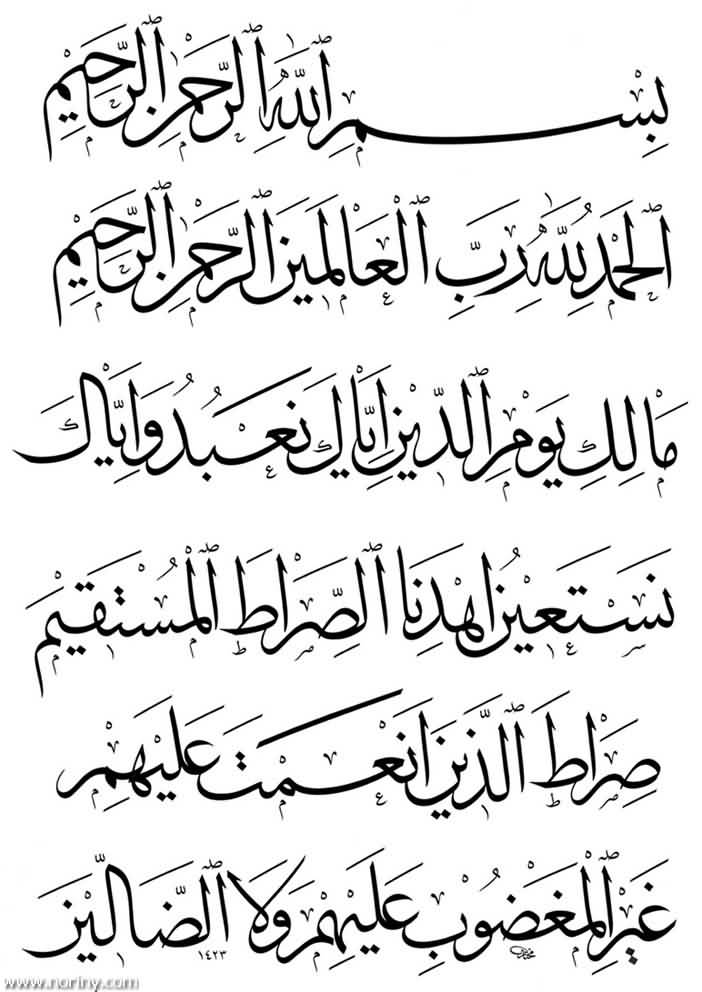 بِسْمِ ٱللَّهِ ٱلرَّحْمٰنِ ٱلرَّحِيْمِ
ٱلْحَمْدُ لِلّٰهِ رَبِّ ٱلْعَالَمِيْنَ ٱلرَّحْمٰنِ ٱلرَّحِيْمِ
مَالِكِ يَوْمِ ٱلدِّيْنِ اِيَّاكَ نَعْبُدُ وَاِيَّاكَ
نَسْتَعِيْنُ اِهْدِنَا ٱلصِّرَاطَ ٱلْمُسْتَقِيْمَ
صِرَاطَ ٱلَّذِيْنَ اَنْعَمْتَ عَلَيْهِمْ
غَيْرِ ٱلْمَغْضُوْبِ عَلَيْهِمْ وَلَا ٱلضَّالِّيْنَ
١٤٢٣
www.noriny.com